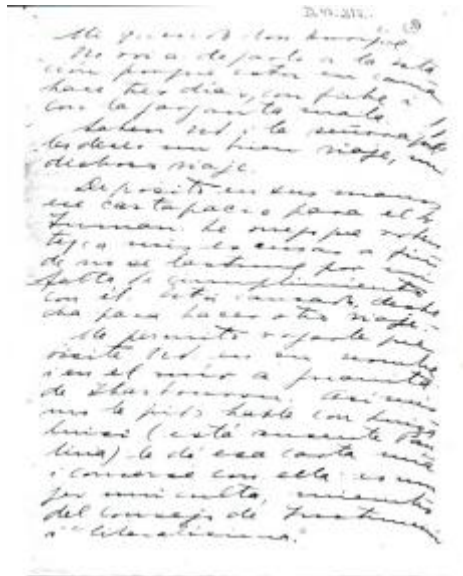 D.47.212.
Mi querido don Enrique
No voi a dejarlo a la esta
ción porque estoi en cama
hace tres dias, con fiebre i
con la garganta mala.
Saben Ud i la señora que
les deseo un buen viaje, un
dichoso viaje.
Deposito en sus manos
ese cartapacio para el
Guzman. Le ruego que
mis escusas a
de no se por mi
falta de cumplimiento
con él. Está cansado,
para hacer otro viaje.
Me permito rogarle que
visite Ud. en su nombre
i en el mio a Juanita
de Ibarbourou. Asi mis
mo le pido hable con Luisa
Luisi (está ausente Pau
lina) le dé esa carta mia
i converse con ella: es mu
jer mui culta, miembro
del Consejo de